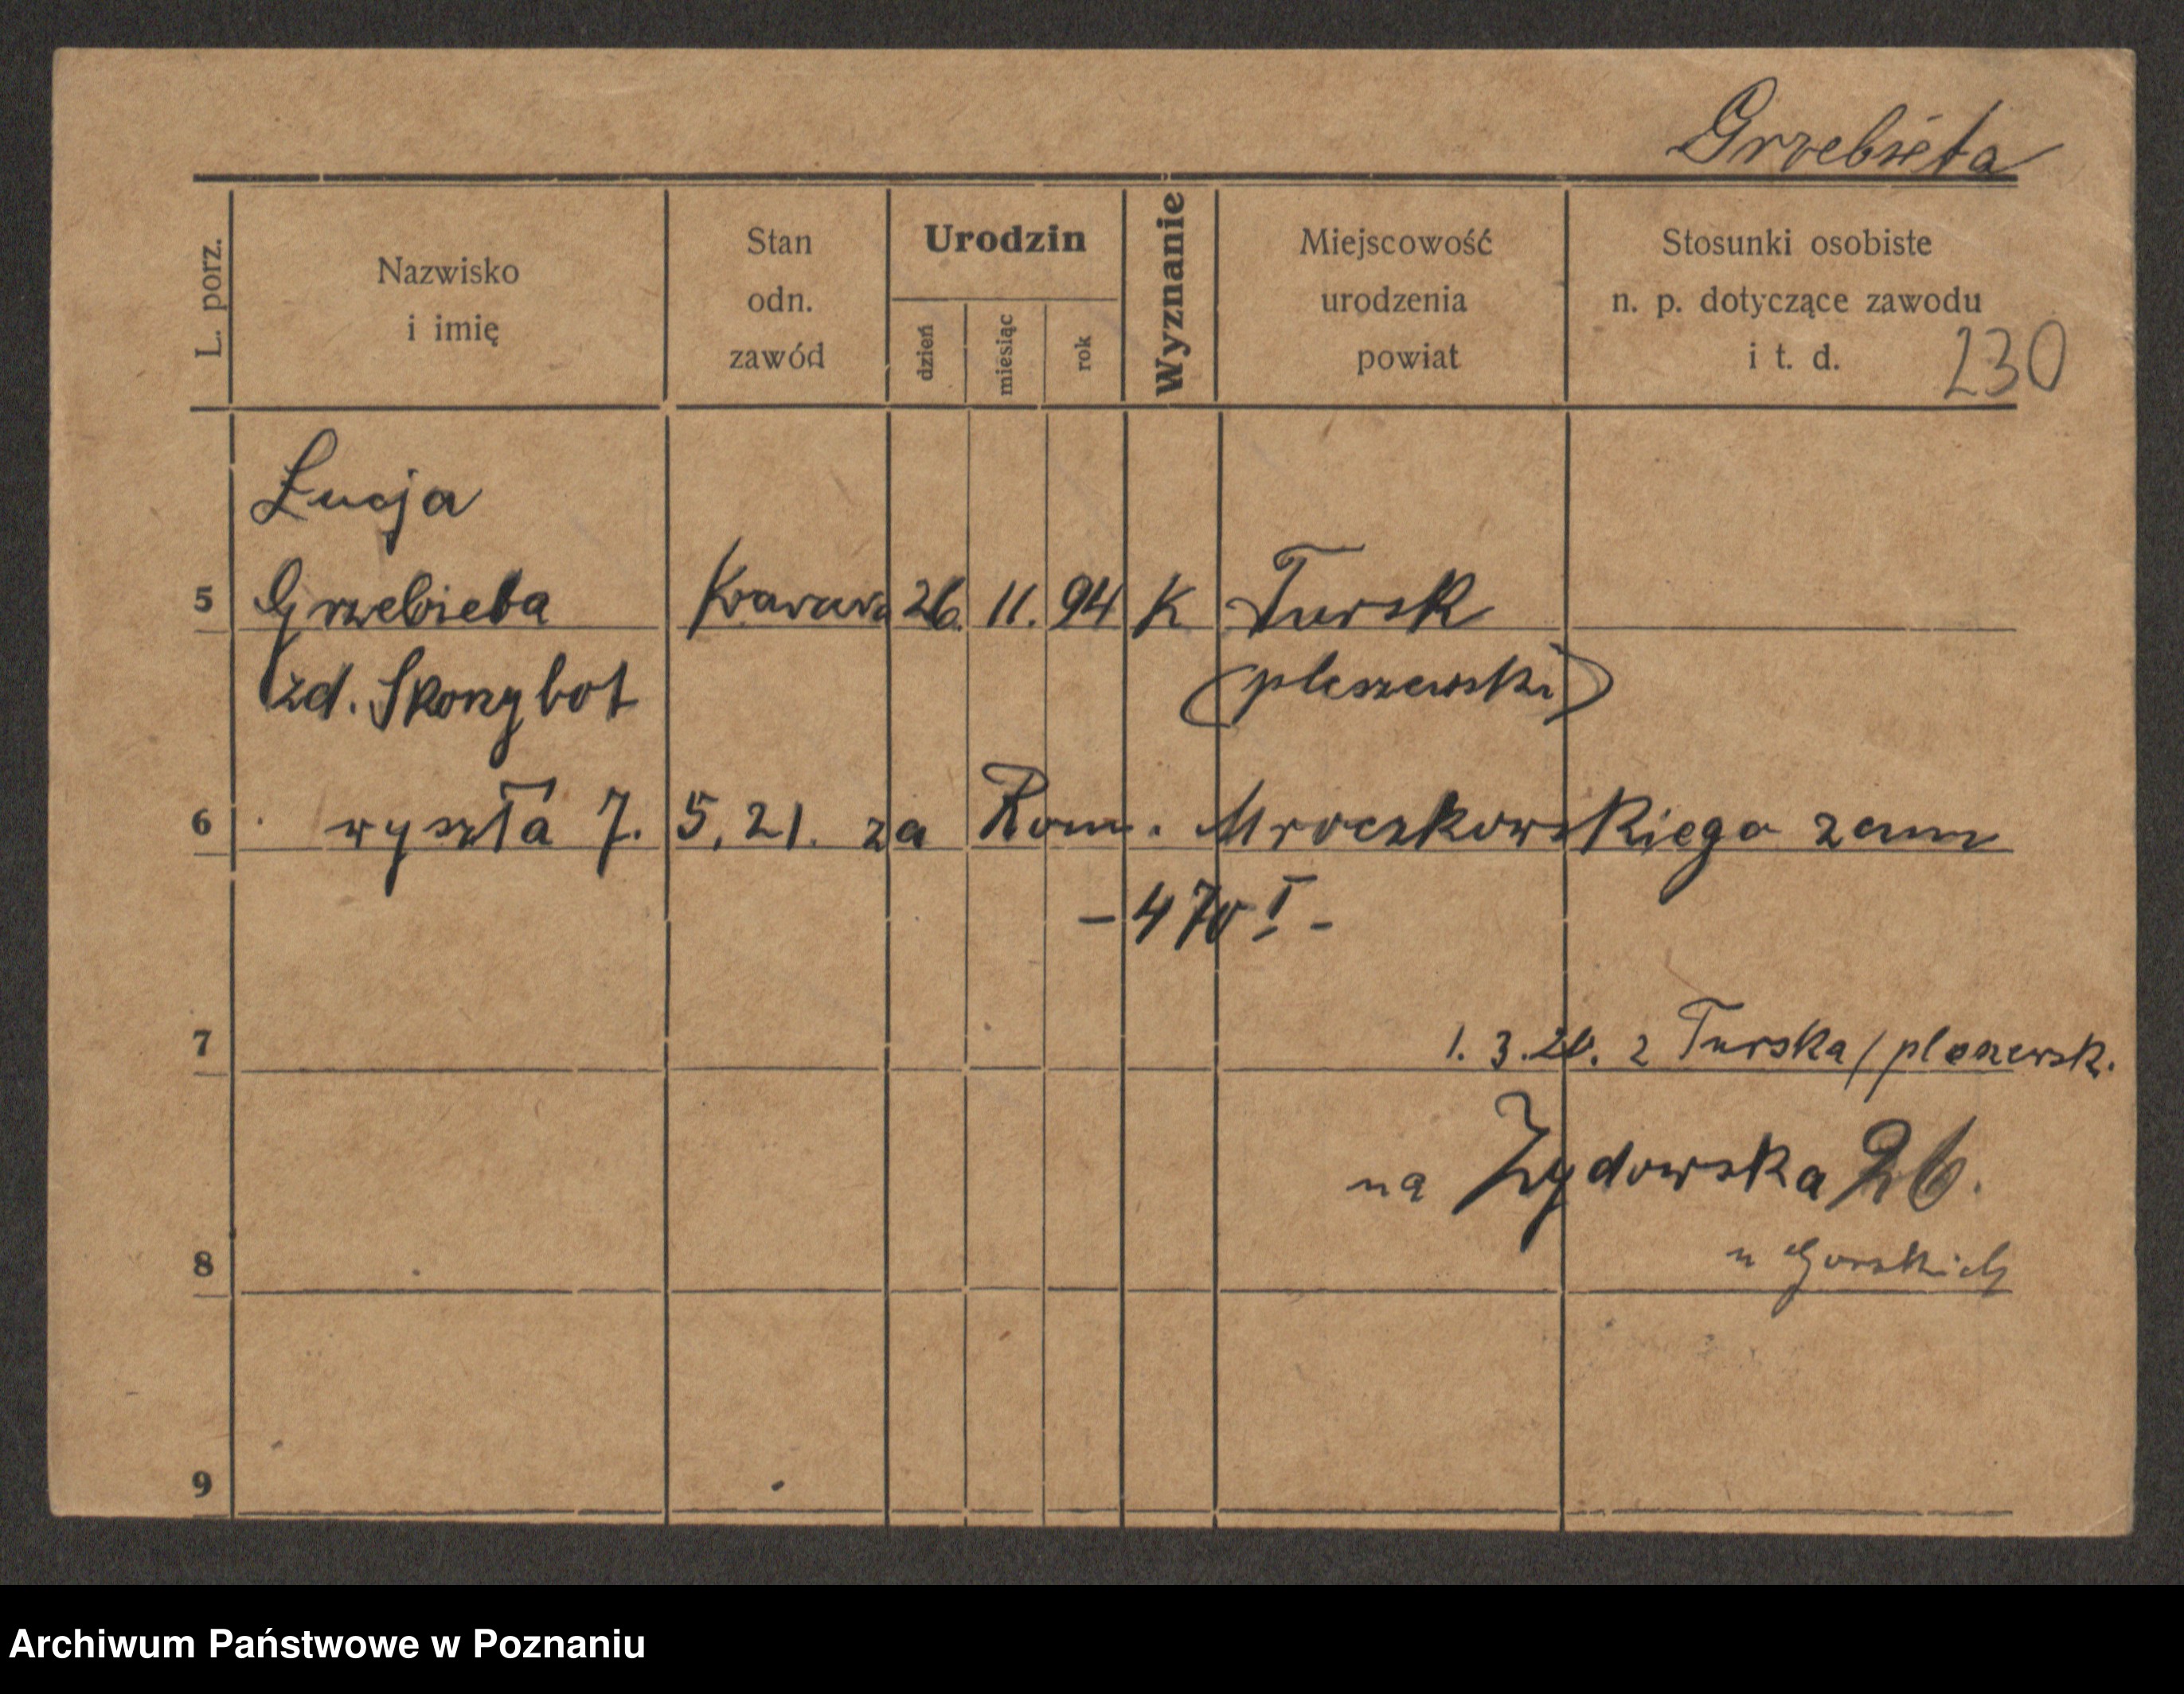 Grzebieta
L. porz.
Nazwisko
i imię
Stan
odn.
zawód
Urodzin
dzień
miesiąc
rok
Wyznanie
Miejscowość
urodzenia
powiat
Stosunki osobiste
n. p. dotyczące zawodu
i t. d.
230
Łucja
5 Grzebieta 26. 11. 94 K Tursk
zd. (pleszewski)
6 wyszła 7. 5. 21. za Rom. Mroczkowskiego zam
- 470 I -
7 1. 3. 20. z Turska / pleszewsk.
na Żydowska 26.
8 u Gorskich
9
Archiwum Państwowe w Poznaniu